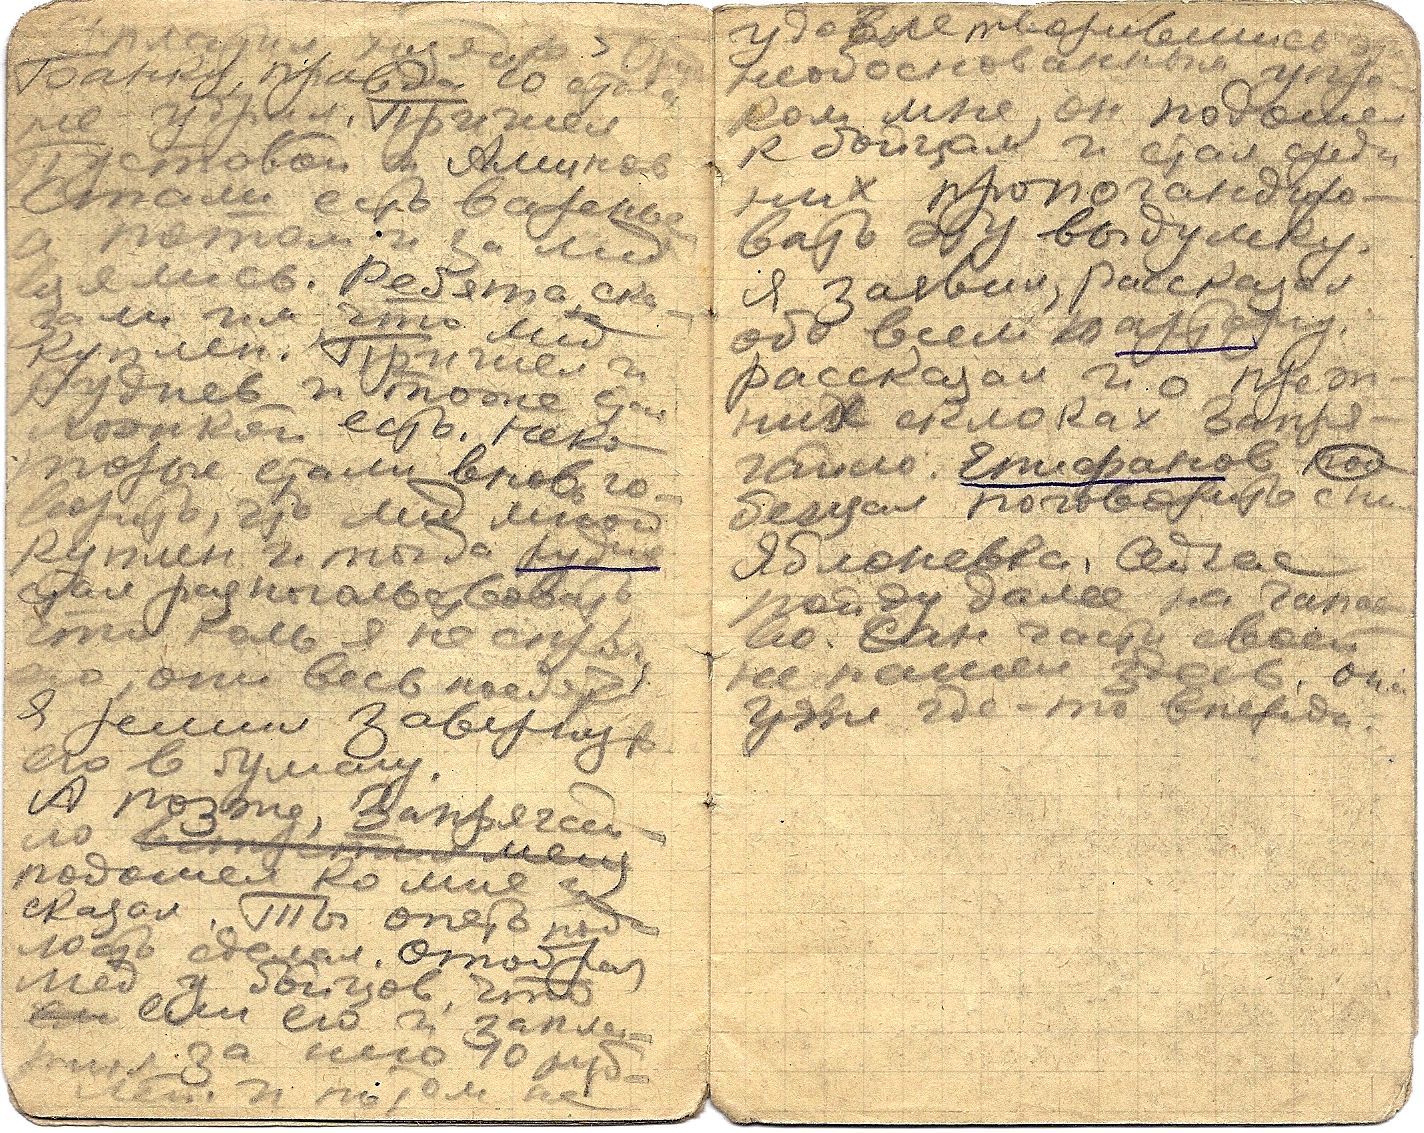 банку, правда 10 
не удрал. Пришел
Пустовой и Аминов
Стали есть варенье
а потом и за мед
взялись. Ребята ска-
зали им, что мед
куплен. Пришел и
Руднев и тоже стал
ложкой есть. Неко-
торые стали вновь го-
ворить, что мед мной
куплен и тогда Рудне
стал разногольствовать
что коль я не спря
его, они весь поедят.
Я решил завернуть
его в бумагу.
А позже, Запрягай-
ло
подошел ко мне и
сказал. Ты опять под
лость сделал. Отобрал
мед у бойцов, что
ели его и запла-
тил за него 10 руб-
лей. И потом не
удовлетворившись эт
необоснованным упре-
ком мне, он подошел
к бойцам и стал среди
них пропогандиро-
вать эту выдумку.
Я заявил, рассказал
обо всем парторгу.
рассказал и о преж-
них склоках Запря-
гайло. Епифанов по
бещал поговорить с ни
Яблоневка. Сейчас
пойду далее на Чапае
во. Сан части своей
не нашел здесь. они
уже где-то впереди.